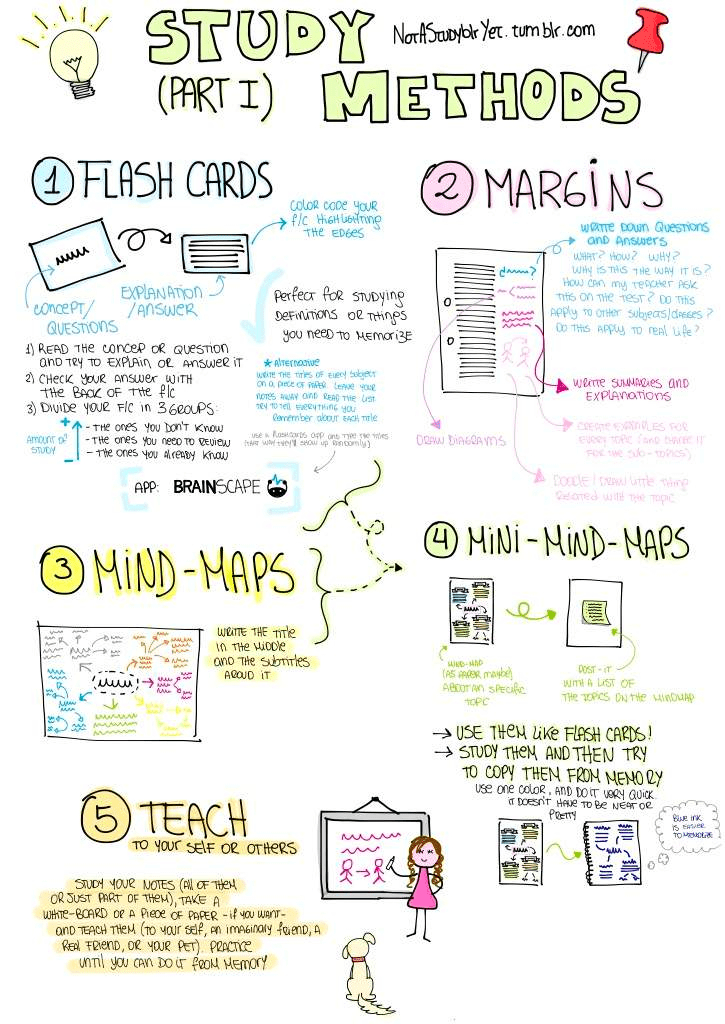 STUDY
NotAStudyblrYet.tumblr.com
(PART I)
METHODS
1 FLASH CARDS
COLOR CODE YOUR
F/C HIGHLIGHTING
THE EDGES
CONCEPT/
QUESTIONS
EXPLANATION
/ANSWER
PERFECT FOR STUDYING
DEFINITIONS OR THINGS
YOU NEED TO MEMORIZE
1) READ THE CONCEP OR QUESTION
AND TRY TO EXPLAIN OR ANSWER IT
2) CHECK YOUR ANSWER WITH
THE BACK OF THE F/C
3) DIVIDE YOUR F/C IN 3 GROUPS:
- THE ONES YOU DON'T KNOW
- THE ONES YOU NEED TO REVIEW
- THE ONES YOU ALREADY KNOW
+
AMOUNT OF
STUDY
-
* Alternative
WRITE THE TITLES OF EVERY SUBJECT
ON A PIECE OF PAPER. LEAVE YOUR
NOTES AWAY AND READ THE LIST.
TRY TO TELL EVERYTHING YOU
REMEMBER ABOUT EACH TITLE
USE A FLASHCARDS APP AND TYPE THE TITLES
(THAT WAY THEY'LL SHOW UP RANDOMLY)
APP: BRAINSCAPE
2 MARGINS
WRITE DOWN QUESTIONS
AND ANSWERS
WHAT? HOW? WHY?
WHY IS THIS THE WAY IT IS?
HOW CAN MY TEACHER ASK
THIS ON THE TEST? DO THIS
APPLY TO OTHER SUBJECTS/CLASSES?
DO THIS APPLY TO REAL LIFE?
WRITE SUMMARIES AND
EXPLANATIONS
DRAW DIAGRAMS
CREATE EXAMPLES FOR
EVERY TOPIC (AND
FOR THE SUB-TOPICS)
DOODLE/DRAW LITTLE THING
RELATED WITH THE TOPIC
3 MIND-MAPS
WRITE THE TITLE
IN THE MIDDLE
AND THE SUBTITLES
AROUD IT
4 MINI-MIND-MAPS
MIND-MAP
(A5 PAPER MAYBE)
ABOUT AN SPECIFIC
TOPIC
POST-IT
WITH A LIST OF
THE TOPICS ON THE MINDMAP
→ USE THEM LIKE FLASH CARDS!
→ STUDY THEM AND THEN TRY
TO COPY THEM FROM MEMORY
USE ONE COLOR, AND DO IT VERY QUICK
IT DOESN'T HAVE TO BE NEAT OR
PRETTY
BLUE INK
IS EASIER
TO MEMORIZE
5 TEACH
TO YOUR SELF OR OTHERS
STUDY YOUR NOTES (ALL OF THEM
OR JUST PART OF THEM), TAKE A
WHITE-BOARD OR A PIECE OF PAPER -IF YOU WANT-
AND TEACH THEM (TO YOUR SELF, AN IMAGINARY FRIEND, A
REAL FRIEND, OR YOUR PET). PRACTICE
UNTIL YOU CAN DO IT FROM MEMORY